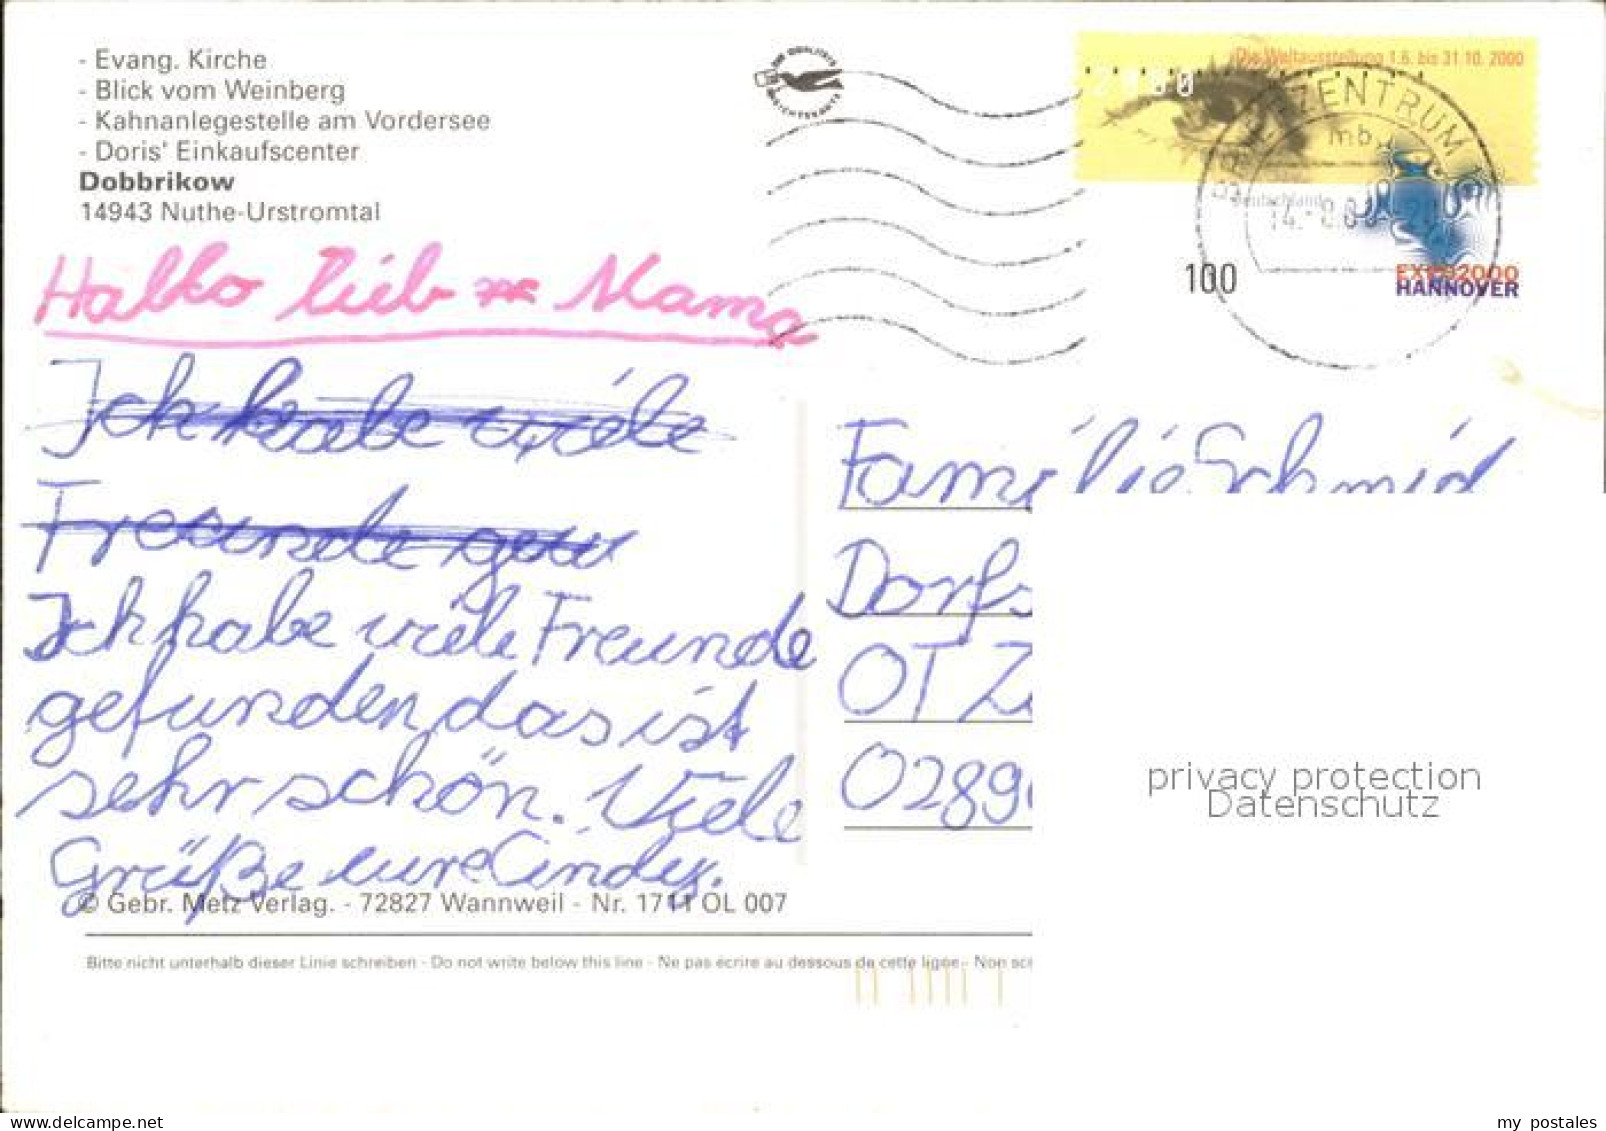 - Evang. Kirche
- Blick vom Weinberg
- Kahnanlegestelle am Vordersee
- Doris' Einkaufscenter
Dobbrikow
14943 Nuthe-Urstromtal
Die Weltausstellung 1.6. bis 31.10. 2000
2000
ZENTRUM
mb
Deutschland
100
EXPO2000
HANNOVER
Hallo lieb Mama
Ich habe viele
Freunde gew
Ich habe viele Freunde
gefunden, das ist
sehr schön. Viele
Grüße eure Cindy.
Familie Schmid
Dorfs
OT Z
0289
privacy protection
Datenschutz
© Gebr. Metz Verlag. - 72827 Wannweil - Nr. 1711 OL 007
Bitte nicht unterhalb dieser Linie schreiben - Do not write below this line - Ne pas écrire au dessous de cette ligne - Non scr
my postales